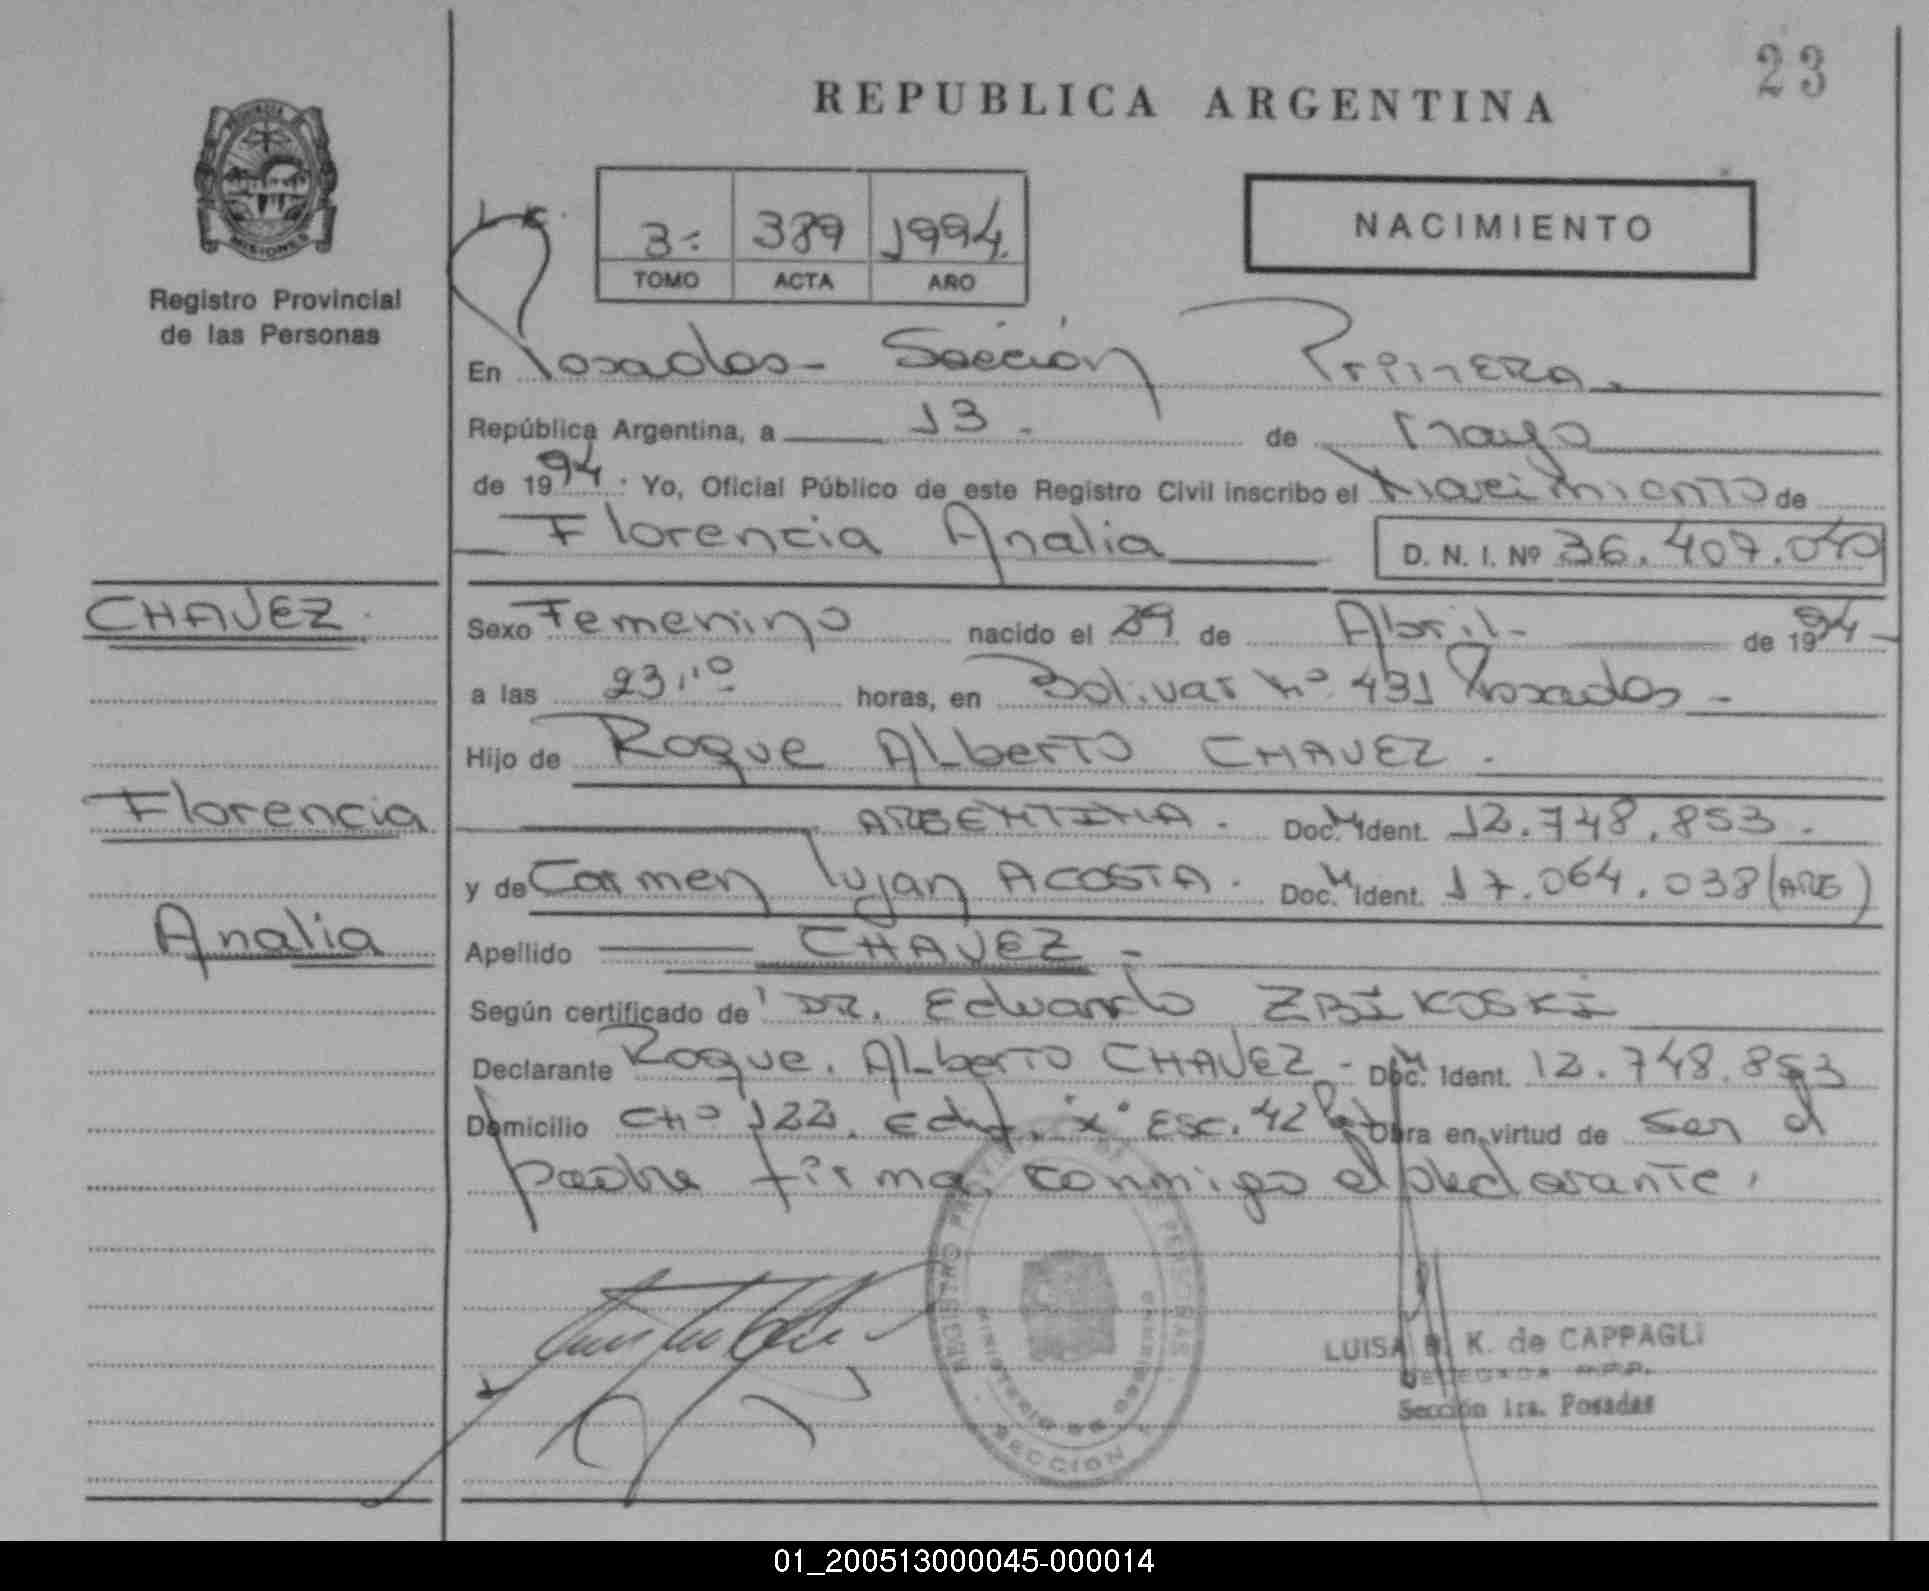 23
REPUBLICA ARGENTINA
PROVINCIA
MISIONES
Registro Provincial
de las Personas
3º 389 1994.
TOMO ACTA AÑO
NACIMIENTO
En Posadas - Sección Primera.
República Argentina, a 13 - de Mayo
de 1994. Yo, Oficial Público de este Registro Civil inscribo el Nacimiento de
Florencia Analia D. N. I. Nº 36.407.040
CHAVEZ.
Sexo Femenino nacido el 29 de Abril - de 1994 -
a las 23,10 horas, en Bolivar nº 431 Posadas -
Hijo de Roque Alberto CHAVEZ.
Florencia
ARGENTINA. Doc. M Ident. 12.748.853.
y de Carmen Lujan ACOSTA. Doc. M Ident. 17.064.038 (ARG)
Analia
Apellido CHAVEZ -
Según certificado de DR. Eduardo ZBIKOSKI
Declarante Roque. Alberto CHAVEZ - Doc. M Ident. 12.748.853
Domicilio CHº 122. Edif. "x" Esc. 42 Obra en virtud de ser el
padre firma, conmigo el declarante.
REGISTRO PROVINCIAL DE LAS PERSONAS
MINISTERIO DE GOBIERNO
SECCION 1
LUISA K. de CAPPAGLI
DELEGADA R.P.P.
Sección 1ra. Posadas
01_200513000045-000014